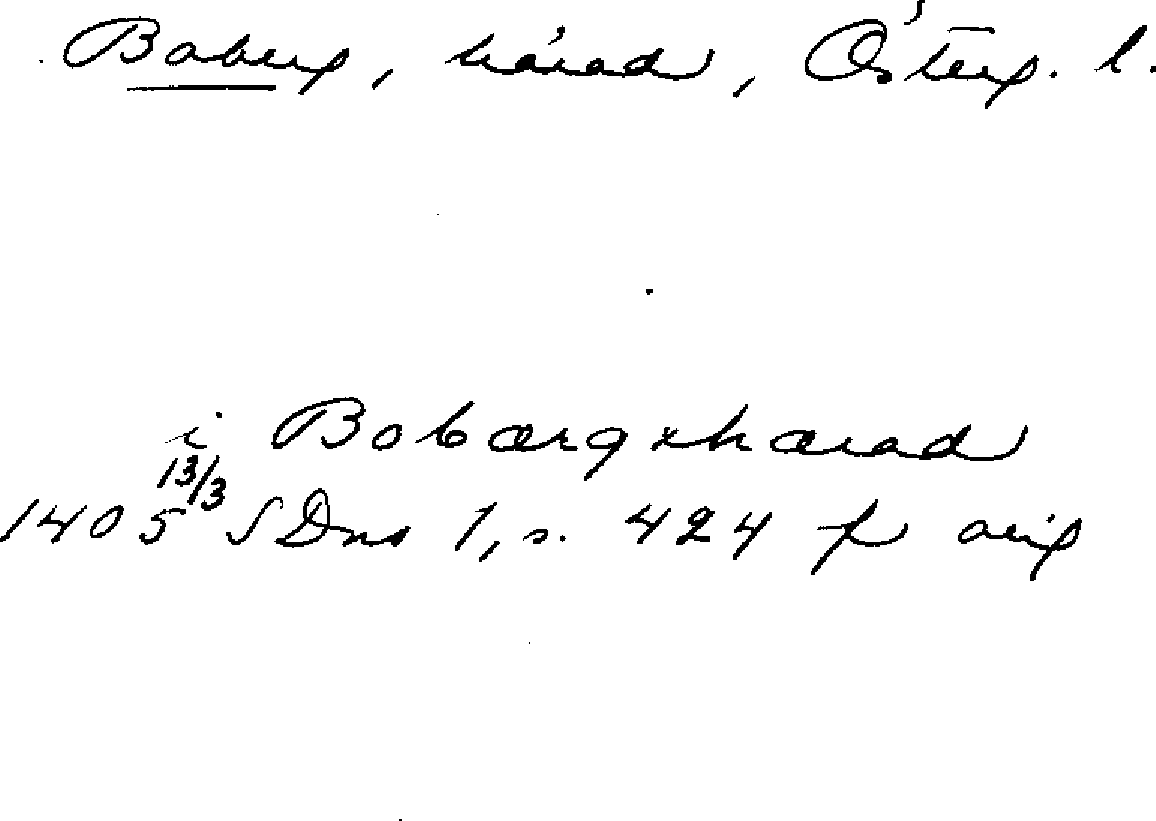 Boberg, härad, Österg. l.
i Bobærgxhærad
1405 13/3 SDns 1, s. 424 p orig